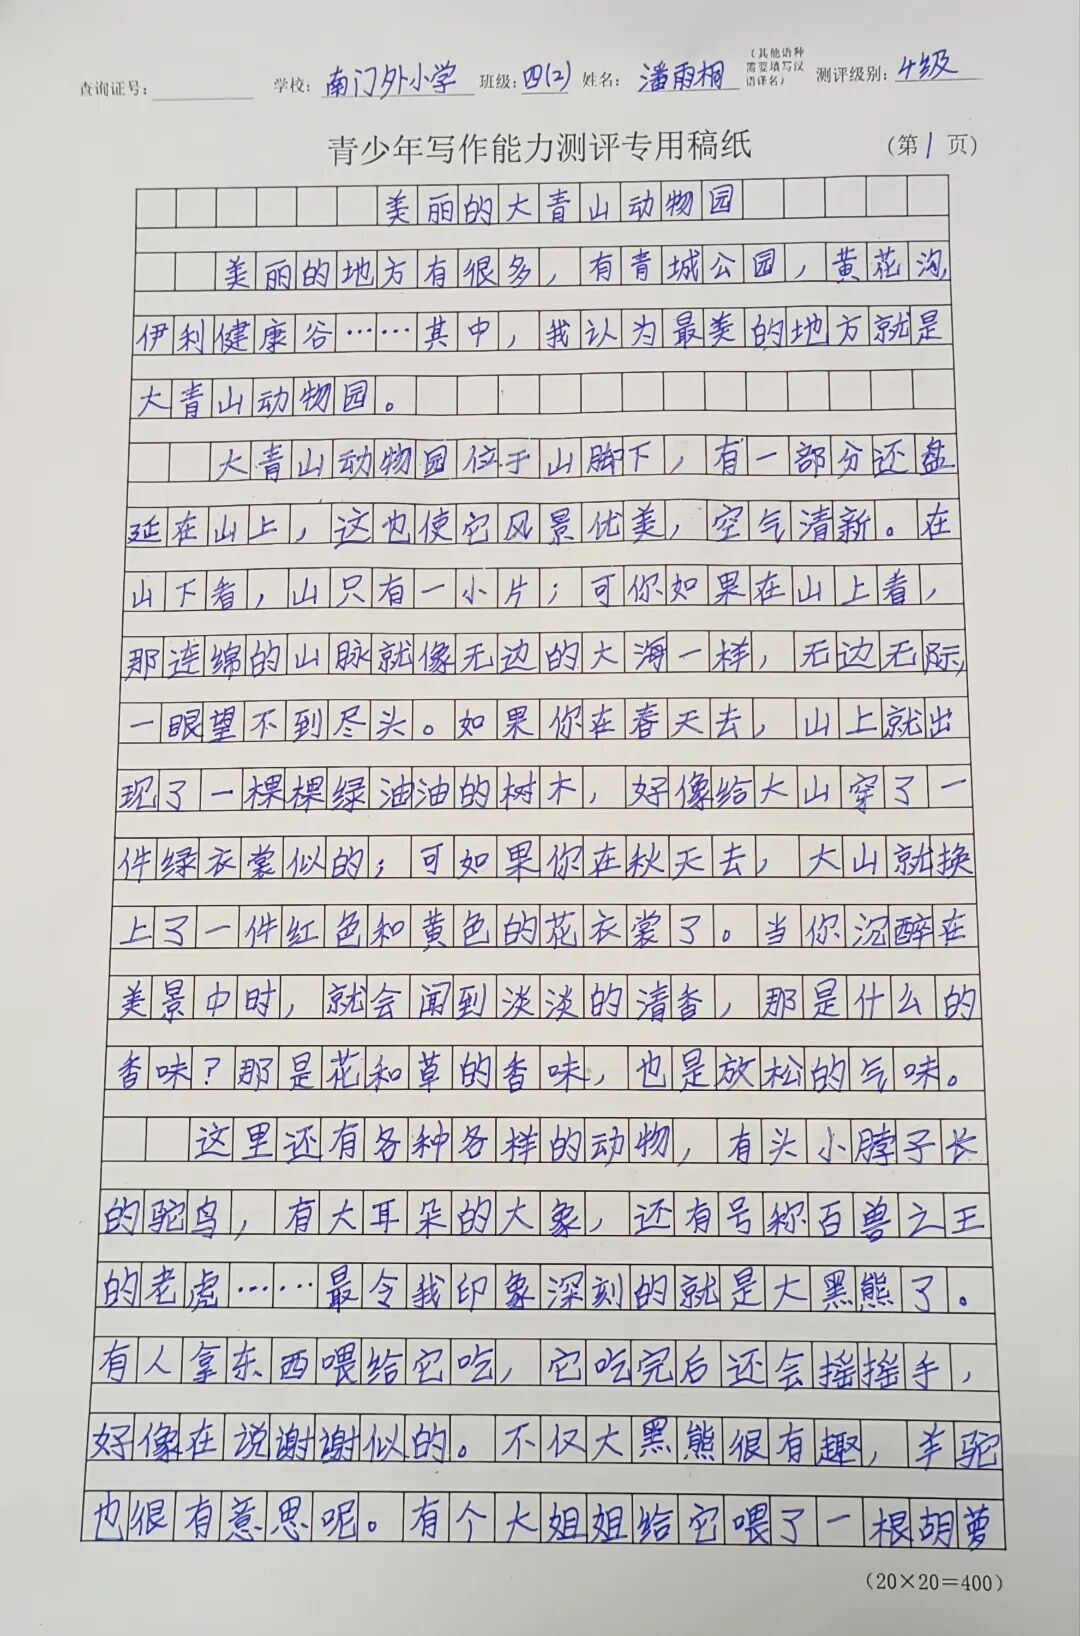 查询证号： 学校：南门外小学 班级：四(2) 姓名：潘雨桐 （其他语种需要填写汉语译名） 测评级别：4级
青少年写作能力测评专用稿纸 （第1页）
美丽的大青山动物园
美丽的地方有很多，有青城公园，黄花沟，
伊利健康谷……其中，我认为最美的地方就是
大青山动物园。
大青山动物园位于山脚下，有一部分还盘
延在山上，这也使它风景优美，空气清新。在
山下看，山只有一小片；可你如果在山上看，
那连绵的山脉就像无边的大海一样，无边无际，
一眼望不到尽头。如果你在春天去，山上就出
现了一棵棵绿油油的树木，好像给大山穿了一
件绿衣裳似的；可如果你在秋天去，大山就换
上了一件红色和黄色的花衣裳了。当你沉醉在
美景中时，就会闻到淡淡的清香，那是什么的
香味？那是花和草的香味，也是放松的气味。
这里还有各种各样的动物，有头小脖子长
的鸵鸟，有大耳朵的大象，还有号称百兽之王
的老虎……最令我印象深刻的就是大黑熊了。
有人拿东西喂给它吃，它吃完后还会摇摇手，
好像在说谢谢似的。不仅大黑熊很有趣，羊驼
也很有意思呢。有个大姐姐给它喂了一根胡萝
（20×20=400）